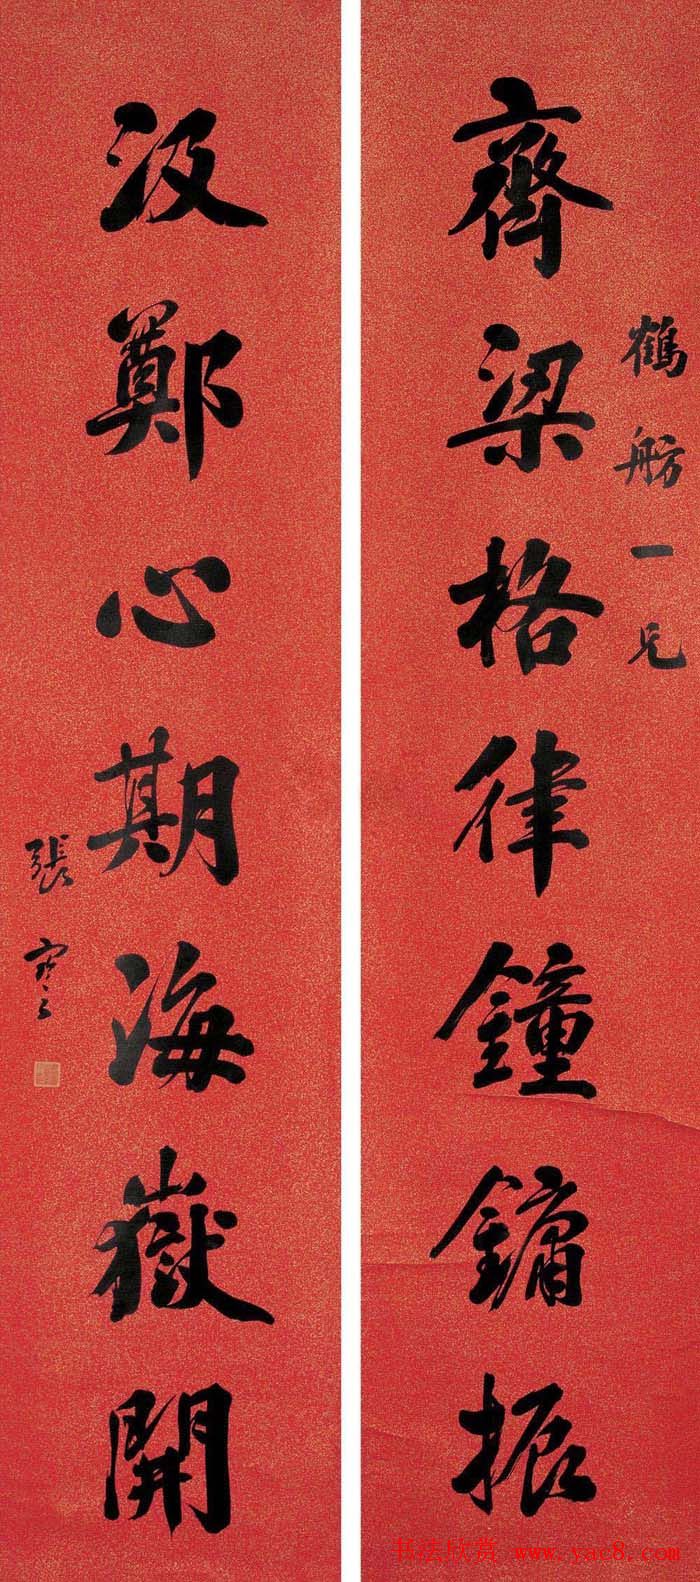 鶴舫一兄
齊梁格律鐘鏞振
汲鄭心期海嶽開
張騫
书法欣赏 www.yac8.com